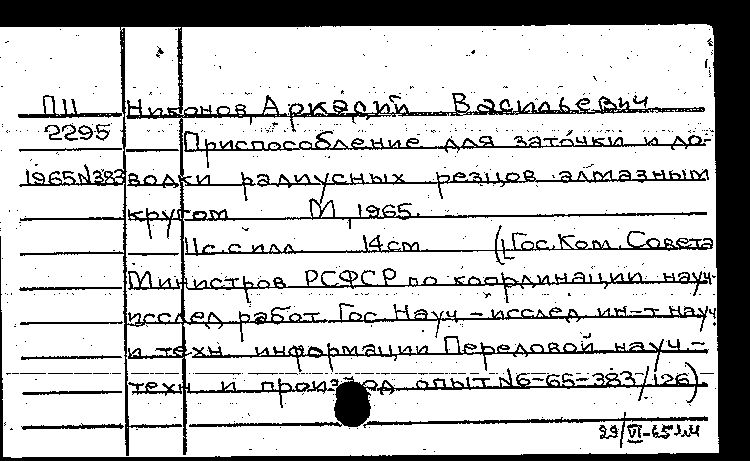 ПII Никонов, Аркадий Васильевич
2295 Приспособление для заточки и до-
1965N383 водки радиусных резцов алмазным
кругом М, 1965.
11с. с илл 14 см. (Гос. Ком. Совета
Министров РСФСР по координации науч-
исслед работ. Гос Науч-исслед ин-т науч
и техн. информации Передовой науч.-
техн и производ опыт N6-65-383/126).
29/VI-65